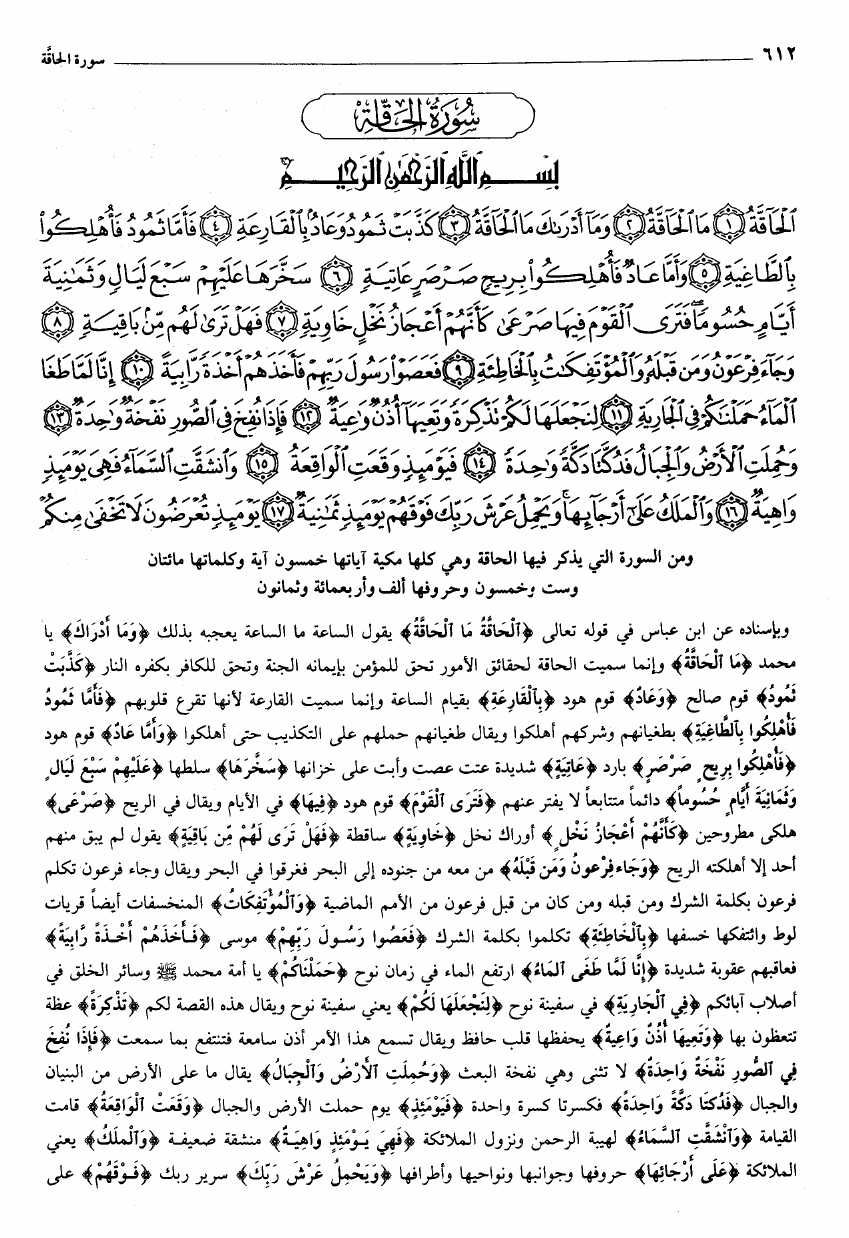 ٦١٢ سورة الحاقَّة
سُورَةُ الحَاقَّة
بِسْمِ اللَّهِ الرَّحْمَٰنِ الرَّحِيمِ
الْحَاقَّةُ ١ مَا الْحَاقَّةُ ٢ وَمَا أَدْرَاكَ مَا الْحَاقَّةُ ٣ كَذَّبَتْ ثَمُودُ وَعَادٌ بِالْقَارِعَةِ ٤ فَأَمَّا ثَمُودُ فَأُهْلِكُوا
بِالطَّاغِيَةِ ٥ وَأَمَّا عَادٌ فَأُهْلِكُوا بِرِيحٍ صَرْصَرٍ عَاتِيَةٍ ٦ سَخَّرَهَا عَلَيْهِمْ سَبْعَ لَيَالٍ وَثَمَانِيَةَ
أَيَّامٍ حُسُومًا فَتَرَى الْقَوْمَ فِيهَا صَرْعَىٰ كَأَنَّهُمْ أَعْجَازُ نَخْلٍ خَاوِيَةٍ ٧ فَهَلْ تَرَىٰ لَهُم مِّن بَاقِيَةٍ ٨
وَجَاءَ فِرْعَوْنُ وَمَن قَبْلَهُ وَالْمُؤْتَفِكَاتُ بِالْخَاطِئَةِ ٩ فَعَصَوْا رَسُولَ رَبِّهِمْ فَأَخَذَهُمْ أَخْذَةً رَّابِيَةً ١٠ إِنَّا لَمَّا طَغَا
الْمَاءُ حَمَلْنَاكُمْ فِي الْجَارِيَةِ ١١ لِنَجْعَلَهَا لَكُمْ تَذْكِرَةً وَتَعِيَهَا أُذُنٌ وَاعِيَةٌ ١٢ فَإِذَا نُفِخَ فِي الصُّورِ نَفْخَةٌ وَاحِدَةٌ ١٣
وَحُمِلَتِ الْأَرْضُ وَالْجِبَالُ فَدُكَّتَا دَكَّةً وَاحِدَةً ١٤ فَيَوْمَئِذٍ وَقَعَتِ الْوَاقِعَةُ ١٥ وَانشَقَّتِ السَّمَاءُ فَهِيَ يَوْمَئِذٍ
وَاهِيَةٌ ١٦ وَالْمَلَكُ عَلَىٰ أَرْجَائِهَا وَيَحْمِلُ عَرْشَ رَبِّكَ فَوْقَهُمْ يَوْمَئِذٍ ثَمَانِيَةٌ ١٧ يَوْمَئِذٍ تُعْرَضُونَ لَا تَخْفَىٰ مِنكُمْ
ومن السورة التي يذكر فيها الحاقة وهي كلها مكية آياتها خمسون آية وكلماتها مائتان
وست وخمسون وحروفها ألف وأربعمائة وثمانون
وبإسناده عن ابن عباس في قوله تعالى ﴿ٱلْحَاقَّةُ مَا ٱلْحَاقَّةُ﴾ يقول الساعة ما الساعة يعجبه بذلك ﴿وَمَا أَدْرَاكَ﴾ يا
محمد ﴿مَا ٱلْحَاقَّةُ﴾ وإنما سميت الحاقة لحقائق الأمور تحق للمؤمن بإيمانه الجنة وتحق للكافر بكفره النار ﴿كَذَّبَتْ
ثَمُودُ﴾ قوم صالح ﴿وَعَادٌ﴾ قوم هود ﴿بِٱلْقَارِعَةِ﴾ بقيام الساعة وإنما سميت القارعة لأنها تقرع قلوبهم ﴿فَأَمَّا ثَمُودُ
فَأُهْلِكُوا بِٱلطَّاغِيَةِ﴾ بطغيانهم وشركهم أهلكوا ويقال طغيانهم حملهم على التكذيب حتى أهلكوا ﴿وَأَمَّا عَادٌ﴾ قوم هود
﴿فَأُهْلِكُوا بِرِيحٍ صَرْصَرٍ﴾ بارد ﴿عَاتِيَةٍ﴾ شديدة عتت عصت وأبت على خزانها ﴿سَخَّرَهَا﴾ سلطها ﴿عَلَيْهِمْ سَبْعَ لَيَالٍ
وَثَمَانِيَةَ أَيَّامٍ حُسُوماً﴾ دائماً متتابعاً لا يفتر عنهم ﴿فَتَرَى ٱلْقَوْمَ﴾ قوم هود ﴿فِيهَا﴾ في الأيام ويقال في الريح ﴿صَرْعَى﴾
هلكى مطروحين ﴿كَأَنَّهُمْ أَعْجَازُ نَخْلٍ﴾ أوراك نخل ﴿خَاوِيَةٍ﴾ ساقطة ﴿فَهَلْ تَرَى لَهُمْ مِّن بَاقِيَةٍ﴾ يقول لم يبق منهم
أحد إلا أهلكته الريح ﴿وَجَاء فِرْعونُ وَمَن قَبْلَهُ﴾ من معه من جنوده إلى البحر فغرقوا في البحر ويقال وجاء فرعون تكلم
فرعون بكلمة الشرك ومن قبله ومن كان من قبل فرعون من الأمم الماضية ﴿وَٱلْمُؤْتَفِكَاتُ﴾ المنخسفات أيضاً قريات
لوط وائتفكها خسفها ﴿بِٱلْخَاطِئَةِ﴾ تكلموا بكلمة الشرك ﴿فَعَصُوا رَسُولَ رَبِّهِمْ﴾ موسى ﴿فَأَخَذَهُمْ أَخْذَةً رَّابِيَةً﴾
فعاقبهم عقوبة شديدة ﴿إِنَّا لَمَّا طَغَى ٱلمَاءُ﴾ ارتفع الماء في زمان نوح ﴿حَمَلْنَاكُمْ﴾ يا أمة محمد ﷺ وسائر الخلق في
أصلاب آبائكم ﴿فِي ٱلْجَارِيَةِ﴾ في سفينة نوح ﴿لِنَجْعَلَهَا لَكُمْ﴾ يعني سفينة نوح ويقال هذه القصة لكم ﴿تَذْكِرَةً﴾ عظة
تتعظون بها ﴿وَتَعِيَهَا أُذُنٌ وَاعِيةٌ﴾ يحفظها قلب حافظ ويقال تسمع هذا الأمر أذن سامعة فتنتفع بما سمعت ﴿فَإِذَا نُفِخَ
فِي ٱلصُّورِ نَفْخَةٌ وَاحِدَةٌ﴾ لا تثنى وهي نفخة البعث ﴿وَحُمِلَتِ ٱلأَرْضُ وَٱلْجِبَالُ﴾ يقال ما على الأرض من البنيان
والجبال ﴿فَدُكَتَا دَكَّةً وَاحِدَةً﴾ فكسرتا كسرة واحدة ﴿فَيَوْمَئِذٍ﴾ يوم حملت الأرض والجبال ﴿وَقَعَتْ ٱلْوَاقِعَةُ﴾ قامت
القيامة ﴿وَٱنْشَقَّتِ ٱلسَّمَاءُ﴾ لهيبة الرحمن ونزول الملائكة ﴿فَهِيَ يَوْمَئِذٍ وَاهِيَةٌ﴾ منشقة ضعيفة ﴿وَٱلْملَكُ﴾ يعني
الملائكة ﴿عَلَى أَرْجَائِهَا﴾ حروفها وجوانبها ونواحيها وأطرافها ﴿وَيَحْمِلُ عَرْشَ رَبِّكَ﴾ سرير ربك ﴿فَوْقَهُمْ﴾ على